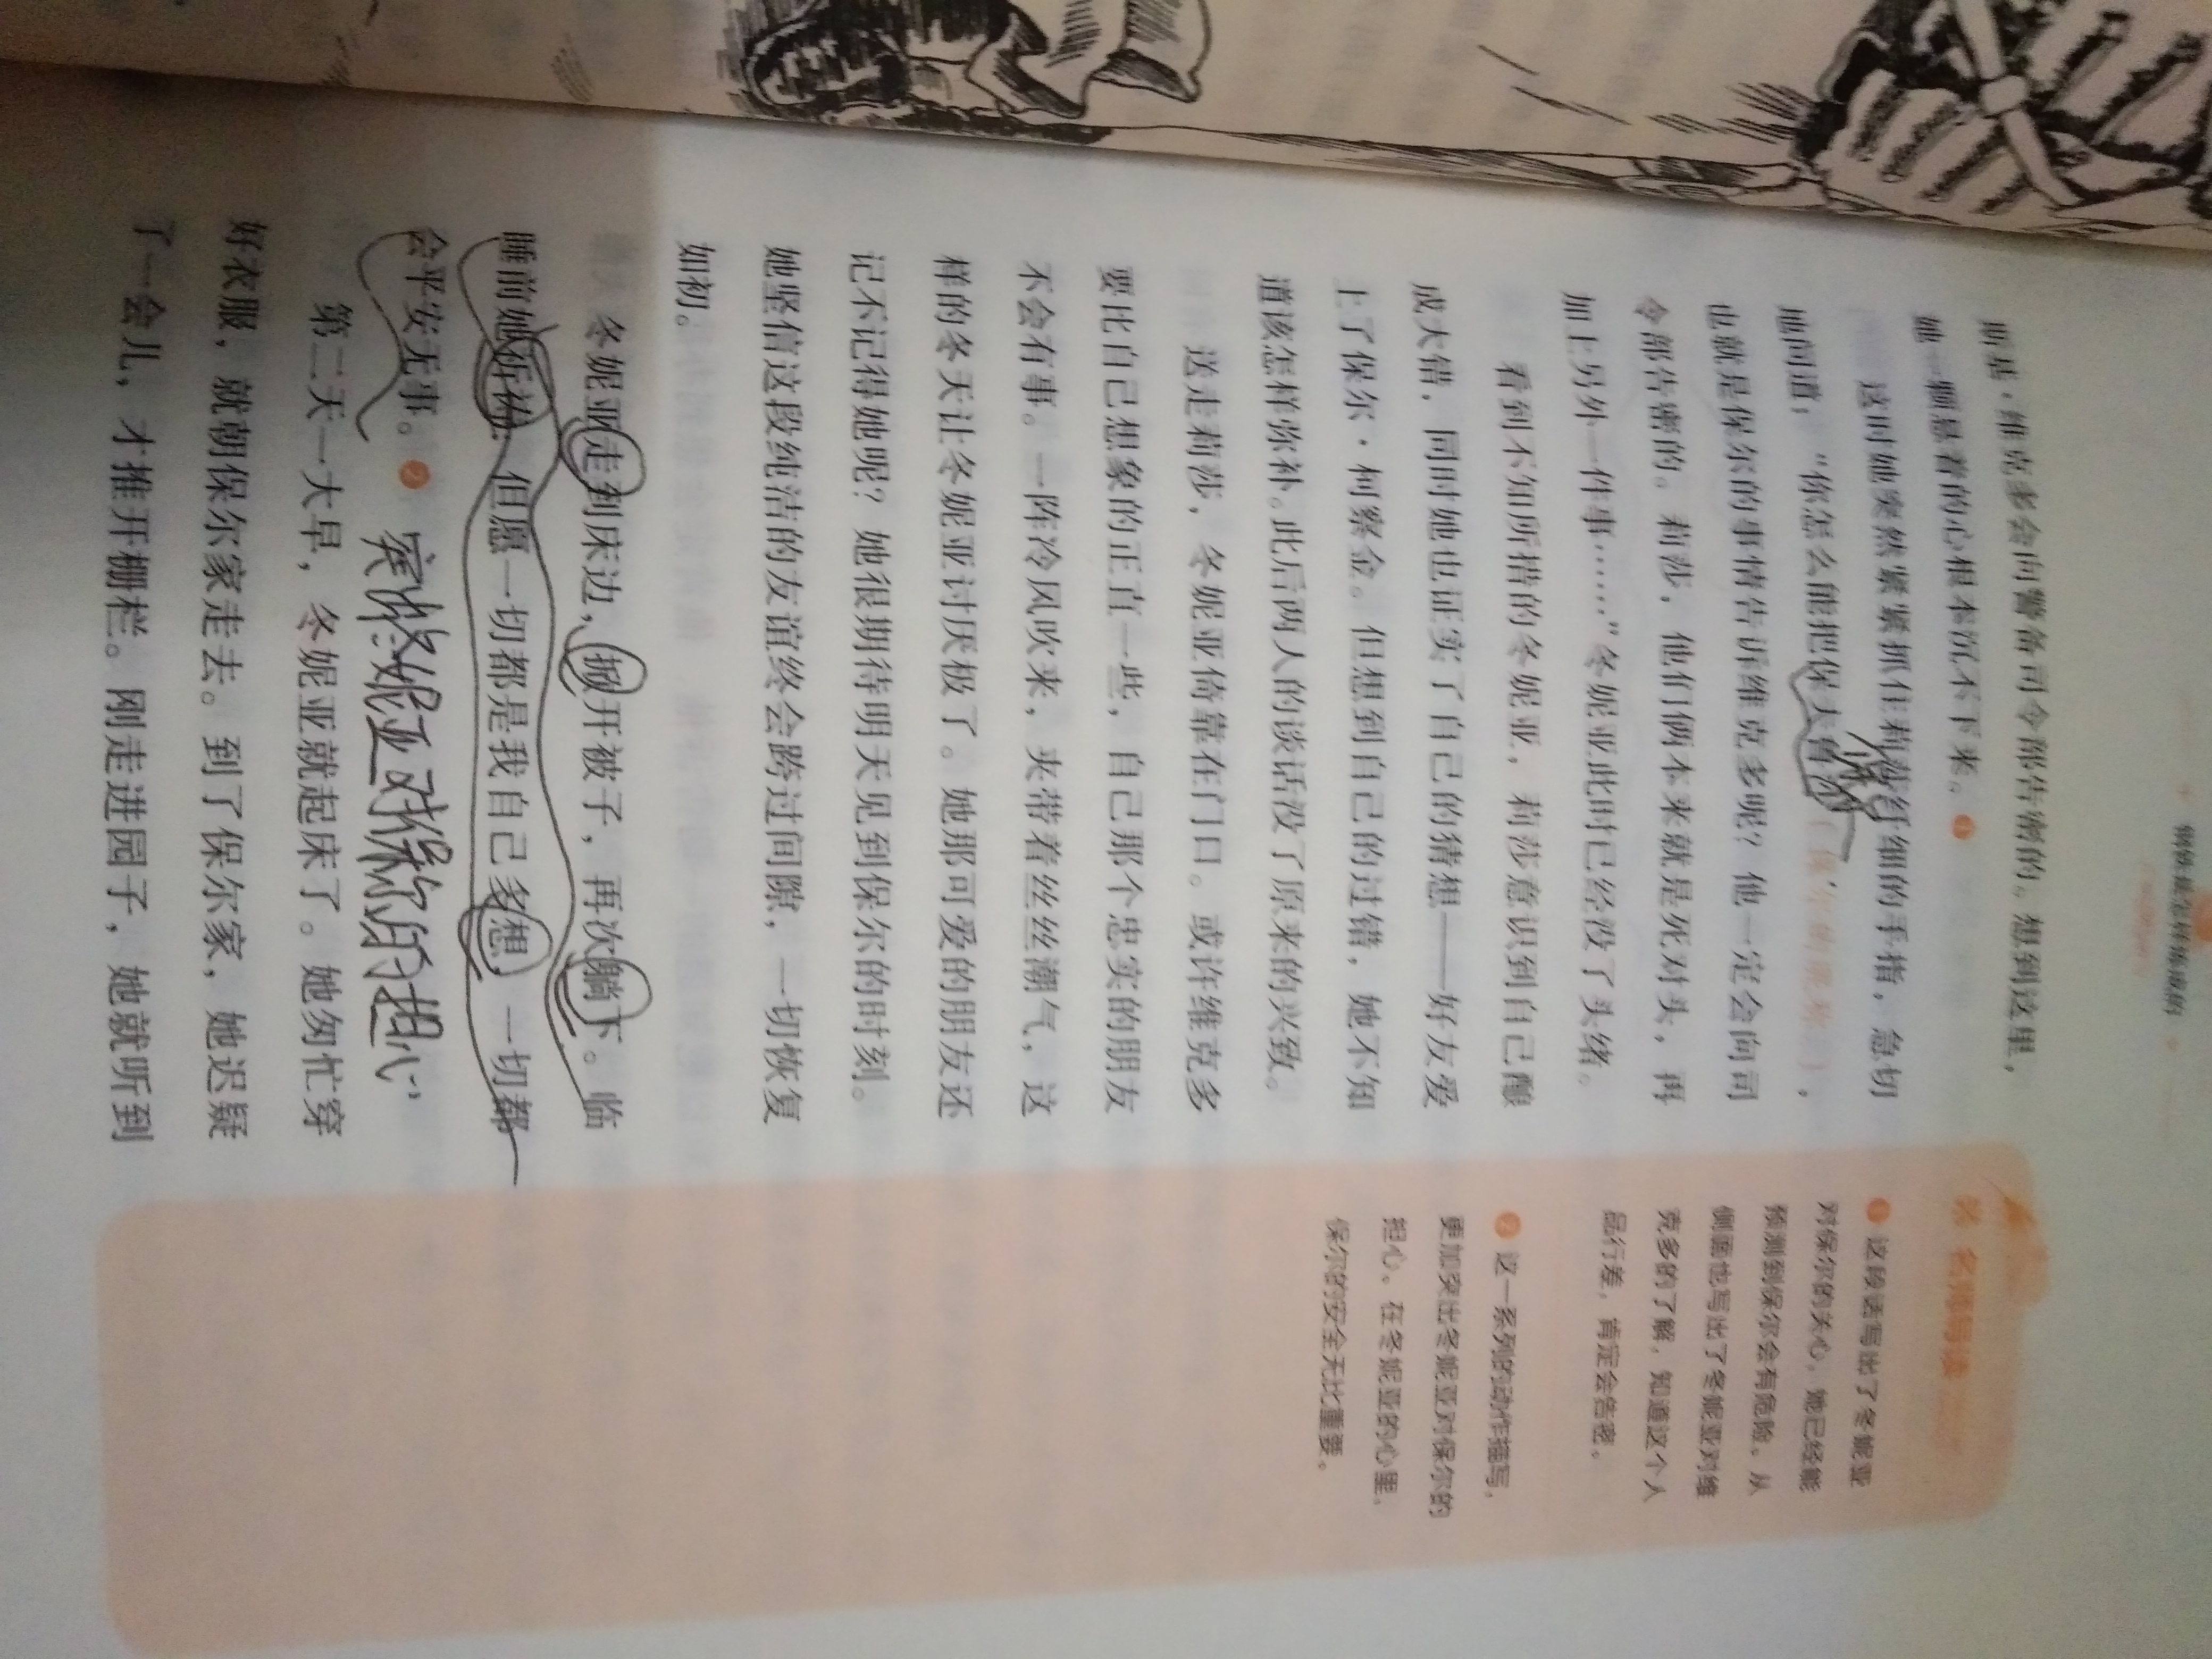 钢铁是怎样炼成的
所述，维克多会向警备司令部告密的。想到这里，
她一颗悬着的心根本沉不下来。❶
这时她突然紧紧抓住莉莎纤细的手指，急切
地问道：“你怎么能把保
也就是保尔的事情告诉维克多呢？他一定会向司
令部告密的。莉莎，他们俩本来就是死对头，再
加上另外一件事……”冬妮亚此时已经没了头绪。
看到不知所措的冬妮亚，莉莎意识到自己酿
成大错，同时她也证实了自己的猜想——好友爱
上了保尔·柯察金。但想到自己的过错，她不知
道该怎样弥补。此后两人的谈话没了原来的兴致。
送走莉莎，冬妮亚倚靠在门口。或许维克多
要比自己想象的正直一些，自己那个忠实的朋友
不会有事。一阵冷风吹来，夹带着丝丝潮气，这
样的冬天让冬妮亚讨厌极了。她那可爱的朋友还
记不记得她呢？她很期待明天见到保尔的时刻。
她坚信这段纯洁的友谊终会跨过间隙，一切恢复
如初。
冬妮亚走到床边，掀开被子，再次躺下。临
睡前她祈祷，但愿一切都是我自己多想，一切都
会平安无事。❷
冬妮亚对保尔的担心
第二天一大早，冬妮亚就起床了。她匆忙穿
好衣服，就朝保尔家走去。到了保尔家，她迟疑
了一会儿，才推开栅栏。刚走进园子，她就听到
名师导读
❶ 这段话写出了冬妮亚
对保尔的关心，她已经能
预测到保尔会有危险。从
侧面也写出了冬妮亚对维
克多的了解，知道这个人
品行差，肯定会告密。
❷ 这一系列的动作描写，
更加突出冬妮亚对保尔的
担心。在冬妮亚的心里，
保尔的安全无比重要。